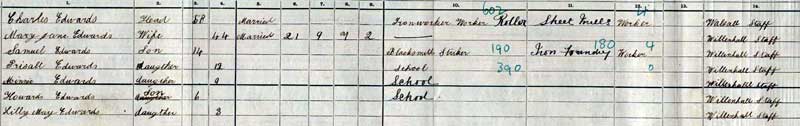 1. 2. 3. 4. 5. 6. 7. 8. 9. 10. 11. 12. 13. 14.
602 4
Charles Edwards Head 58 Married Ironworker Worker Roller Sheet Mills Worker Walsall Staff
Mary Jane Edwards Wife 44 Married 21 9 7 2 Willenhall Staff
Samuel Edwards Son 14 Blacksmith Striker 190 Iron Foundry 180 Worker 4 Willenhall Staff
Edwards daugther 12 School 390 0 Willenhall Staff
Minnie Edwards daugther 9 School Willenhall Staff
Howard Edwards daugther Son 6 School Willenhall Staff
Lilly May Edwards daugther 3 Willenhall Staff